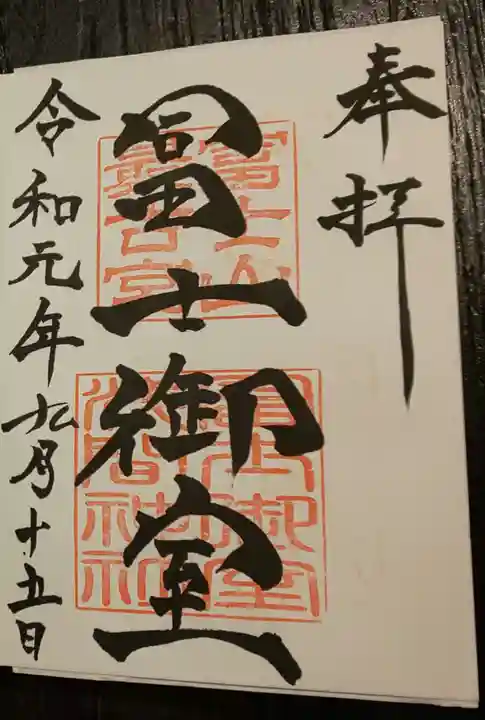 奉拝
冨士御室
富士山
最古宮
冨士御室
浅間神社
令和元年九月十五日